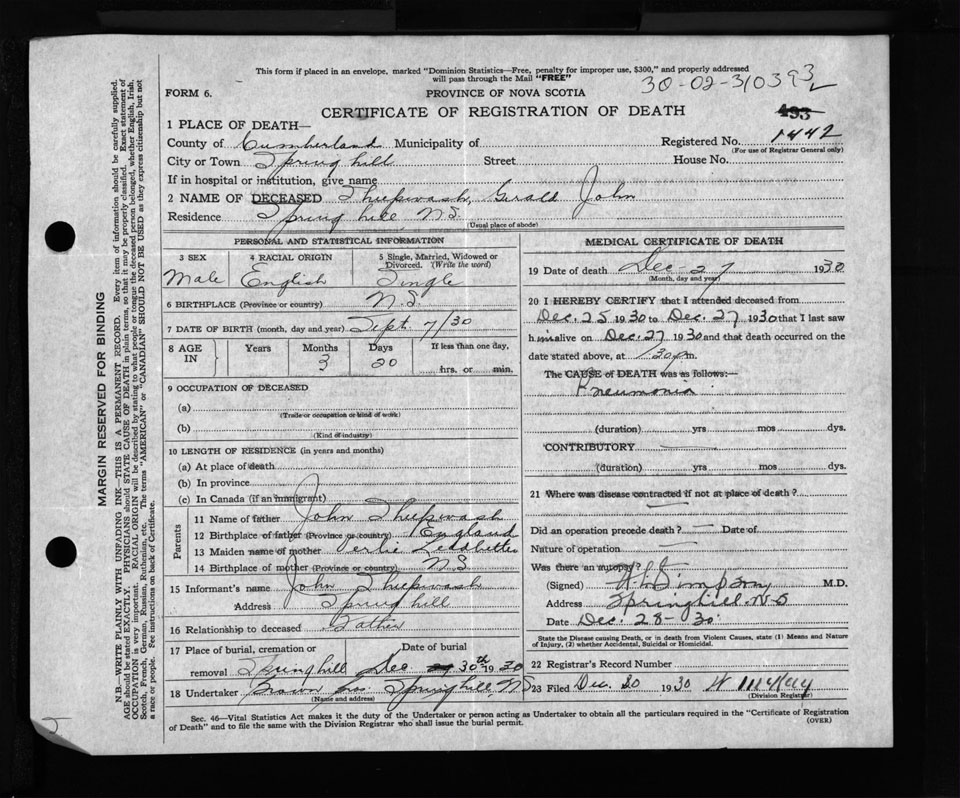 This form if placed in an envelope, marked "Dominion Statistics—Free, penalty for improper use, $300," and properly addressed
will pass through the Mail "FREE"
30-02-310393
FORM 6.
PROVINCE OF NOVA SCOTIA
CERTIFICATE OF REGISTRATION OF DEATH
493
1 PLACE OF DEATH—
1442
County of Cumberland Municipality of Registered No.
(For use of Registrar General only)
City or Town Spring hill Street House No.
If in hospital or institution, give name
2 NAME OF DECEASED Gerald John
Residence Spring hill N.S.
(Usual place of abode)
PERSONAL AND STATISTICAL INFORMATION
3 SEX 4 RACIAL ORIGIN 5 Single, Married, Widowed or Divorced. (Write the word)
Male English Single
6 BIRTHPLACE (Province or country) N.S.
7 DATE OF BIRTH (month, day and year) Sept 7/30
8 AGE IN Years Months Days If less than one day,
3 20 hrs. or min.
9 OCCUPATION OF DECEASED
(a)
(Trade or occupation or kind of work)
(b)
(Kind of industry)
10 LENGTH OF RESIDENCE (in years and months)
(a) At place of death
(b) In province
(c) In Canada (if an immigrant)
Parents
11 Name of father John
12 Birthplace of father (Province or country) England
13 Maiden name of mother Ledbetter
14 Birthplace of mother (Province or country) N.S.
15 Informant's name John
Address Spring hill
16 Relationship to deceased Father
17 Place of burial, cremation or removal Date of burial
Spring hill Dec 30th 1930
18 Undertaker Brown Bros Springhill N.S.
(Name and address)
MEDICAL CERTIFICATE OF DEATH
19 Date of death Dec 27 1930
(Month, day and year)
20 I HEREBY CERTIFY that I attended deceased from
Dec. 25 1930 to Dec. 27 1930 that I last saw
him alive on Dec. 27 1930 and that death occurred on the
date stated above, at m.
The CAUSE of DEATH was as follows:—
Pneumonia
(duration) yrs mos dys.
CONTRIBUTORY
(duration) yrs mos dys.
21 Where was disease contracted if not at place of death?
Did an operation precede death? Date of
Nature of operation
Was there an autopsy?
(Signed) Simpson M.D.
Address Springhill N S
Date Dec. 28-30
State the Disease causing Death, or in death from Violent Causes, state (1) Means and Nature
of Injury, (2) whether Accidental, Suicidal or Homicidal.
22 Registrar's Record Number
23 Filed Dec. 30 1930 W McKay
(Division Registrar)
Sec. 46—Vital Statistics Act makes it the duty of the Undertaker or person acting as Undertaker to obtain all the particulars required in the "Certificate of Registration
of Death" and to file the same with the Division Registrar who shall issue the burial permit.
(OVER)
MARGIN RESERVED FOR BINDING
N.B.—WRITE PLAINLY WITH UNFADING INK—THIS IS A PERMANENT RECORD. Every item of information should be carefully supplied.
AGE should be stated EXACTLY. PHYSICIANS should STATE CAUSE OF DEATH in plain terms, so that it may be properly classified. Exact statement of
OCCUPATION is very important. RACIAL ORIGIN will be described by stating to what people or tongue the deceased person belonged, whether English, Irish,
Scotch, French, German, Russian, Ruthenian, etc. The terms "AMERICAN" or "CANADIAN" SHOULD NOT BE USED as they express citizenship but not
a race or people. See instructions on back of Certificate.